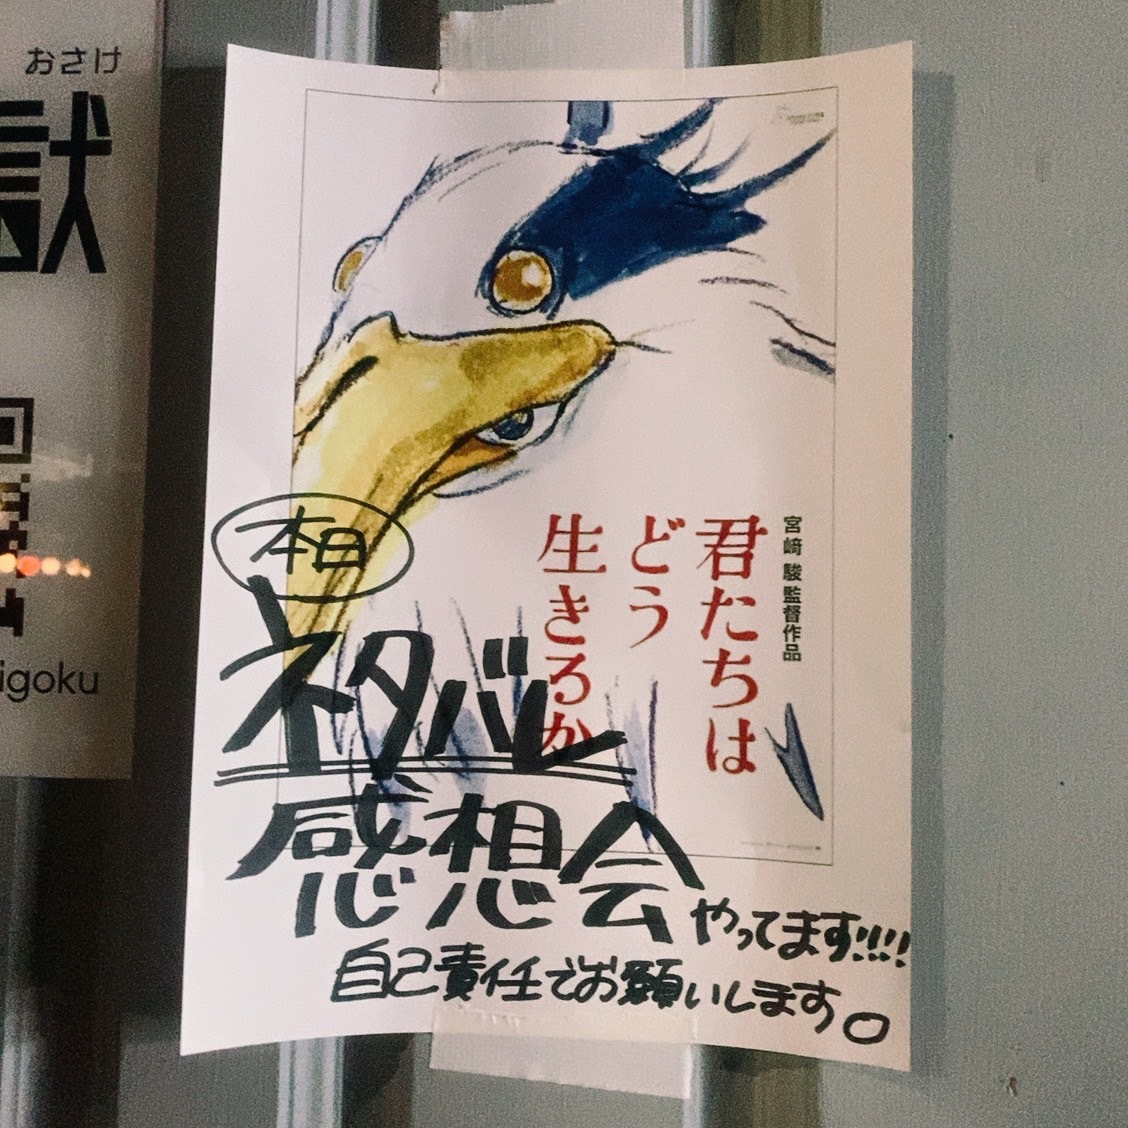 おさけ
獄
igoku
宮﨑駿監督作品
君たちは
どう
生きるか
本日
ネタバレ
感想会やってます!!!!
自己責任でお願いします。